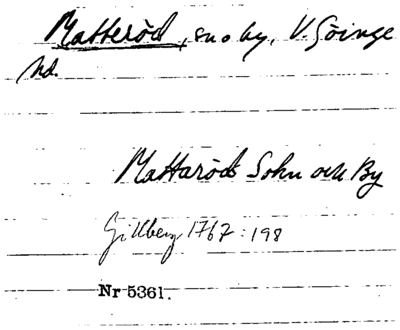 Matteröd, sn o by, V. Göinge
hd.
Mattaröds Sokn och By
Gillberg 1767: 198
Nr 5361.